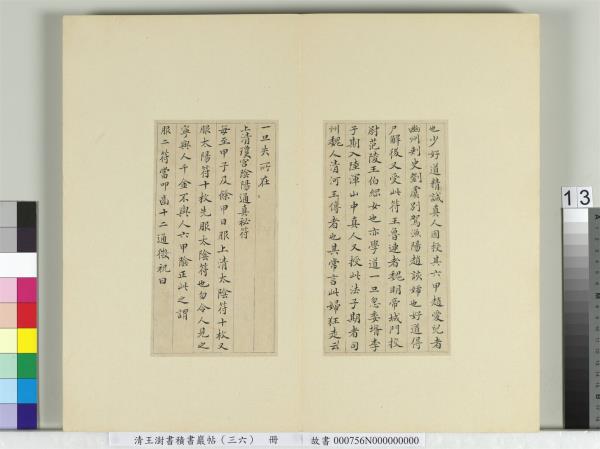 也少好道精誠真人因授其六甲趙愛兒者
幽州刺史劉虞別駕漁陽趙該婦也好道得
尸解後又受此符王魯連者魏明帝城門校
尉范陵王伯綱女也亦學道一旦忽委壻李
子期入陸渾山中真人又授此法子期者司
州魏人清河王傳者也其常言此婦狂走云
一旦失所在
上清瓊宮陰陽通真祕符
每至甲子及餘甲日服上清太陰符十枚又
服太陽符十枚先服太陰符也勿令人見之
寧與人千金不與人六甲陰正此之謂
服二符當叩齒十二通微祝曰
13
清王澍書積書巖帖(三六) 冊 故書 000756N000000000